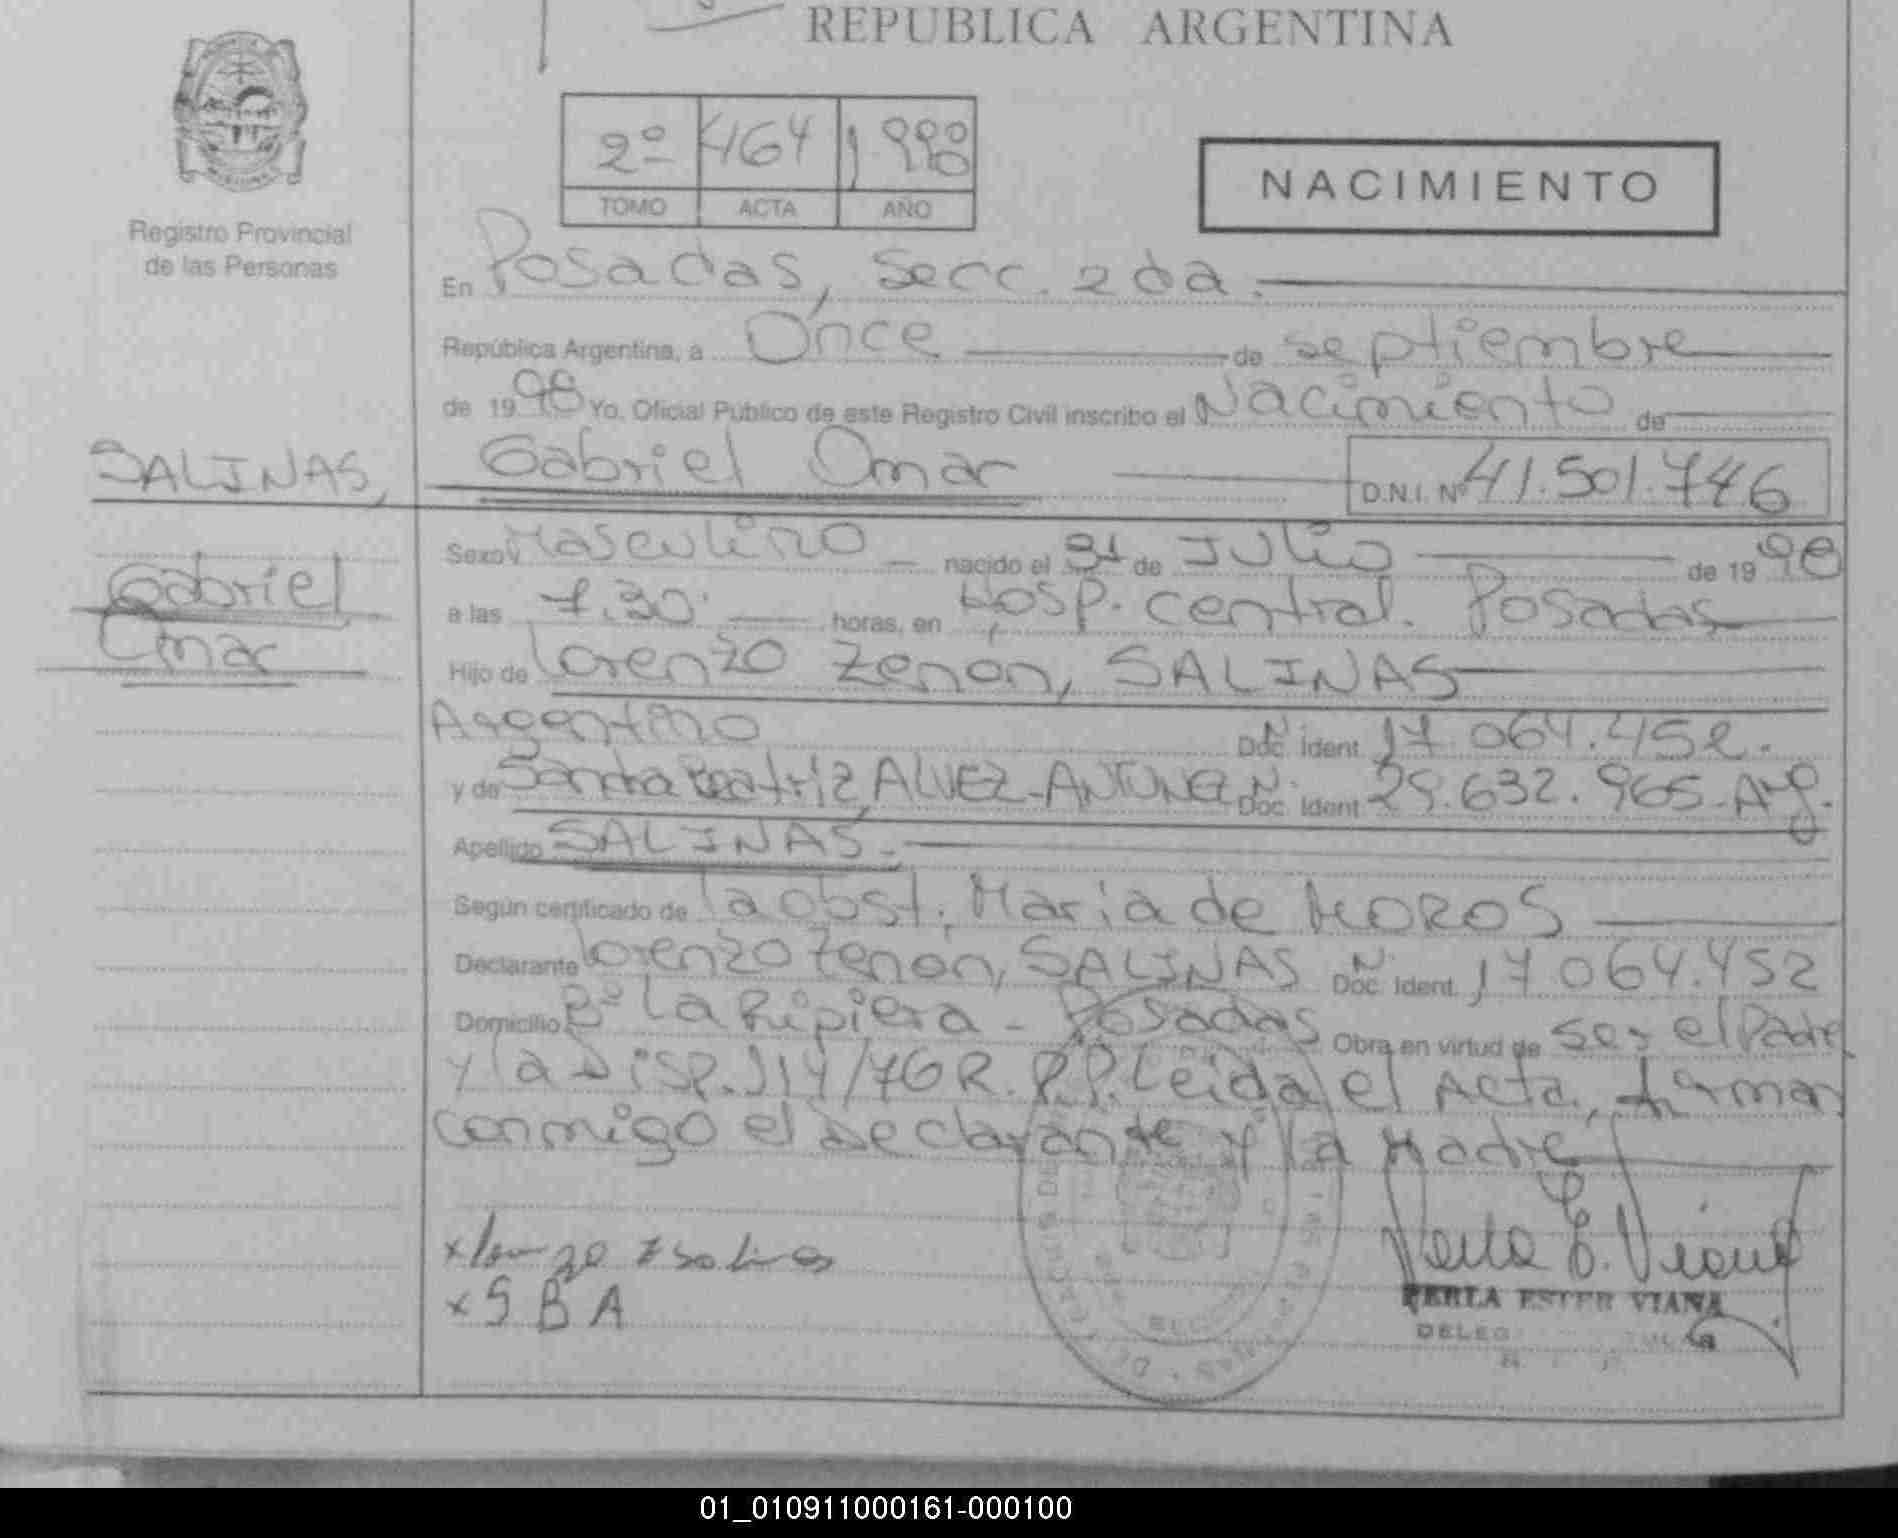 REPUBLICA ARGENTINA
2º 464 1.998
TOMO ACTA AÑO
NACIMIENTO
Registro Provincial
de las Personas
En Posadas, Secc. 2da.
República Argentina, a Once de septiembre
de 1998 Yo. Oficial Público de este Registro Civil inscribo el Nacimiento de
SALINAS, Gabriel Omar D.N.I. Nº 41.501.746
Gabriel
Omar
Sexo Masculino nacido el 31 de Julio de 1998
a las 7.30 horas, en Hosp. central. Posadas
Hijo de Lorenzo Zenón, SALINAS
Argentino Doc. Ident. 17.064.452.
y de Sandra Beatriz, ALVEZ-ANTUNEZ Doc. Ident. 29.632.965-Arg.
Apellido SALINAS.
Según certificado de la obst. Maria de MOROS
Declarante Lorenzo Zenón, SALINAS Doc. Ident. 17.064.452
Domicilio Bº La Ripiera - Posadas Obra en virtud de ser el Padre
y la Disp. 114/76 R.P.P. Leida el Acta, firman
conmigo el declarante y la Madre
x S B A
PERLA ESTER VIANA
01_010911000161-000100